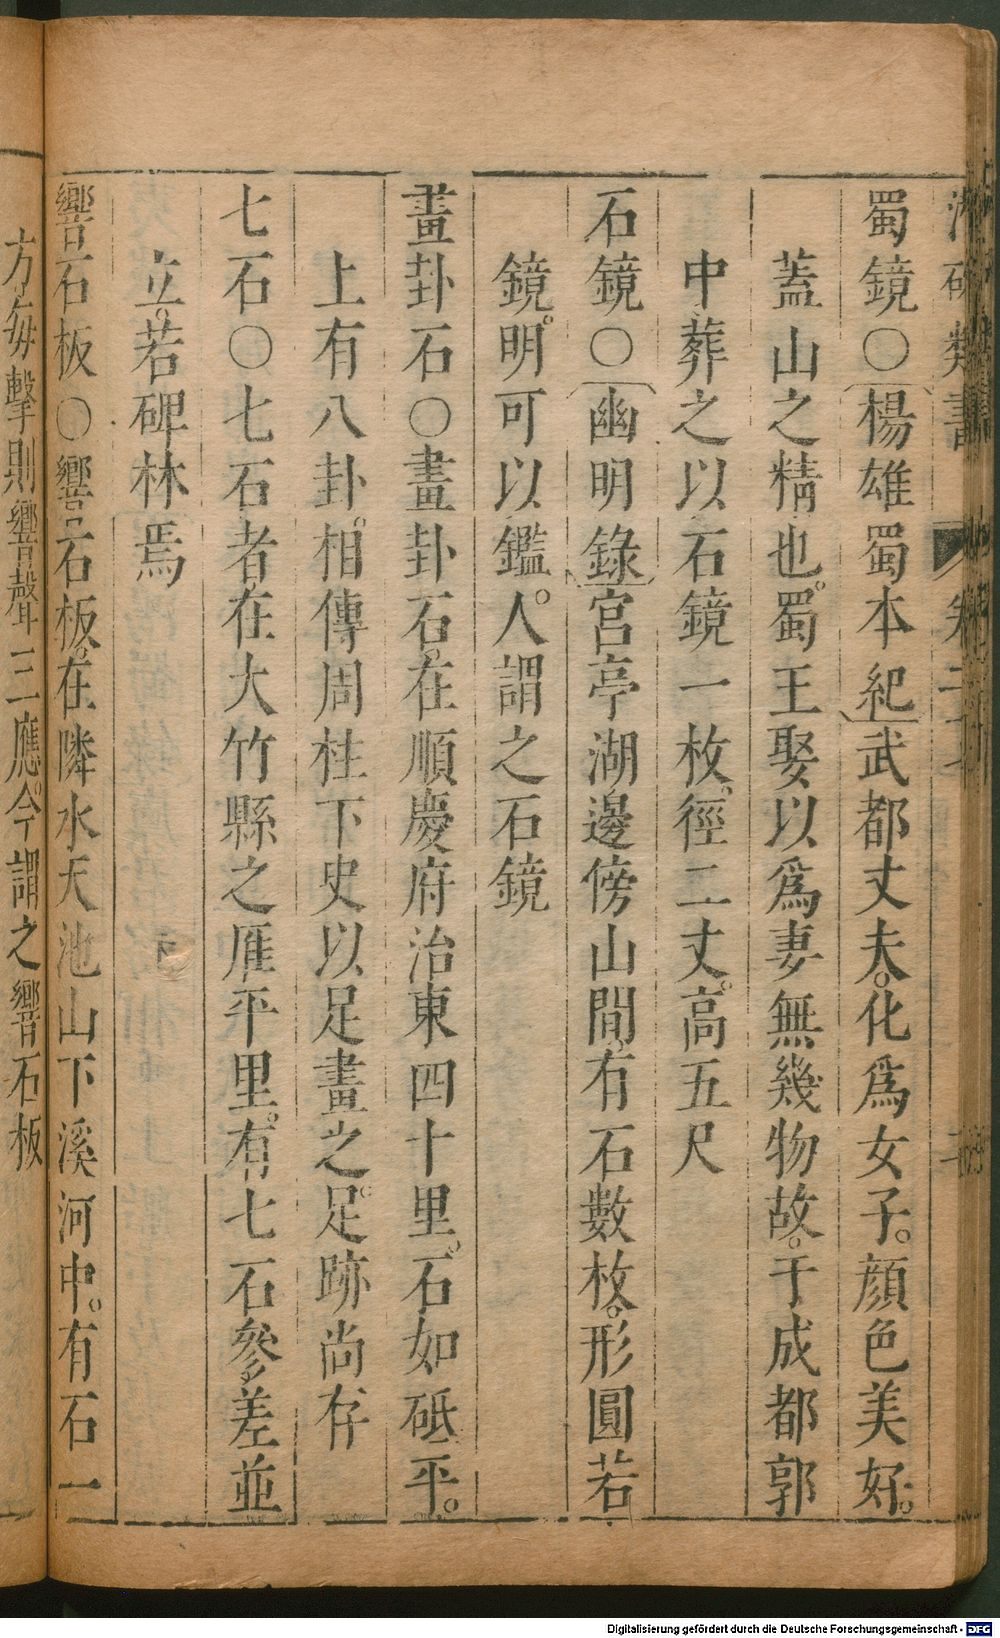 類書
卷二
蜀鏡○楊雄蜀本紀武都丈夫。化爲女子。顏色美好。
蓋山之精也。蜀王娶以爲妻無幾物故。于成都郭
中葬之以石鏡一枚。徑二丈。高五尺
石鏡○幽明錄宮亭湖邊傍山間有石數枚。形圓若
鏡。明可以鑑人。謂之石鏡
畫卦石○畫卦石。在順慶府治東四十里。石如砥平。
上有八卦。相傳周柱下史以足畫之。足跡尚存
七石○七石者在大竹縣之雁平里。有七石參差並
立。若碑林焉
響石板○響石板。在隣水天池山下溪河中。有石一
方每擊則響聲三應。今謂之響石板
Digitalisierung gefördert durch die Deutsche Forschungsgemeinschaft - DFG